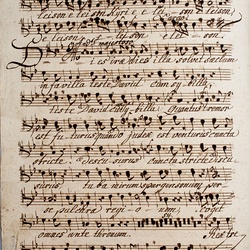 leison leison Kyrie eleison eleison
e leison e lei son
Dies irae dies illa solvet saeclum
in favilla teste David cum Sybilla
teste David cum Sybilla Quantus tremor
est futurus quando judex est venturus cuncta
stricte discussurus cuncta stricte discu
surus tuba mirum spargens sonum per
se pulchra regionum coget
omnes ante thronum